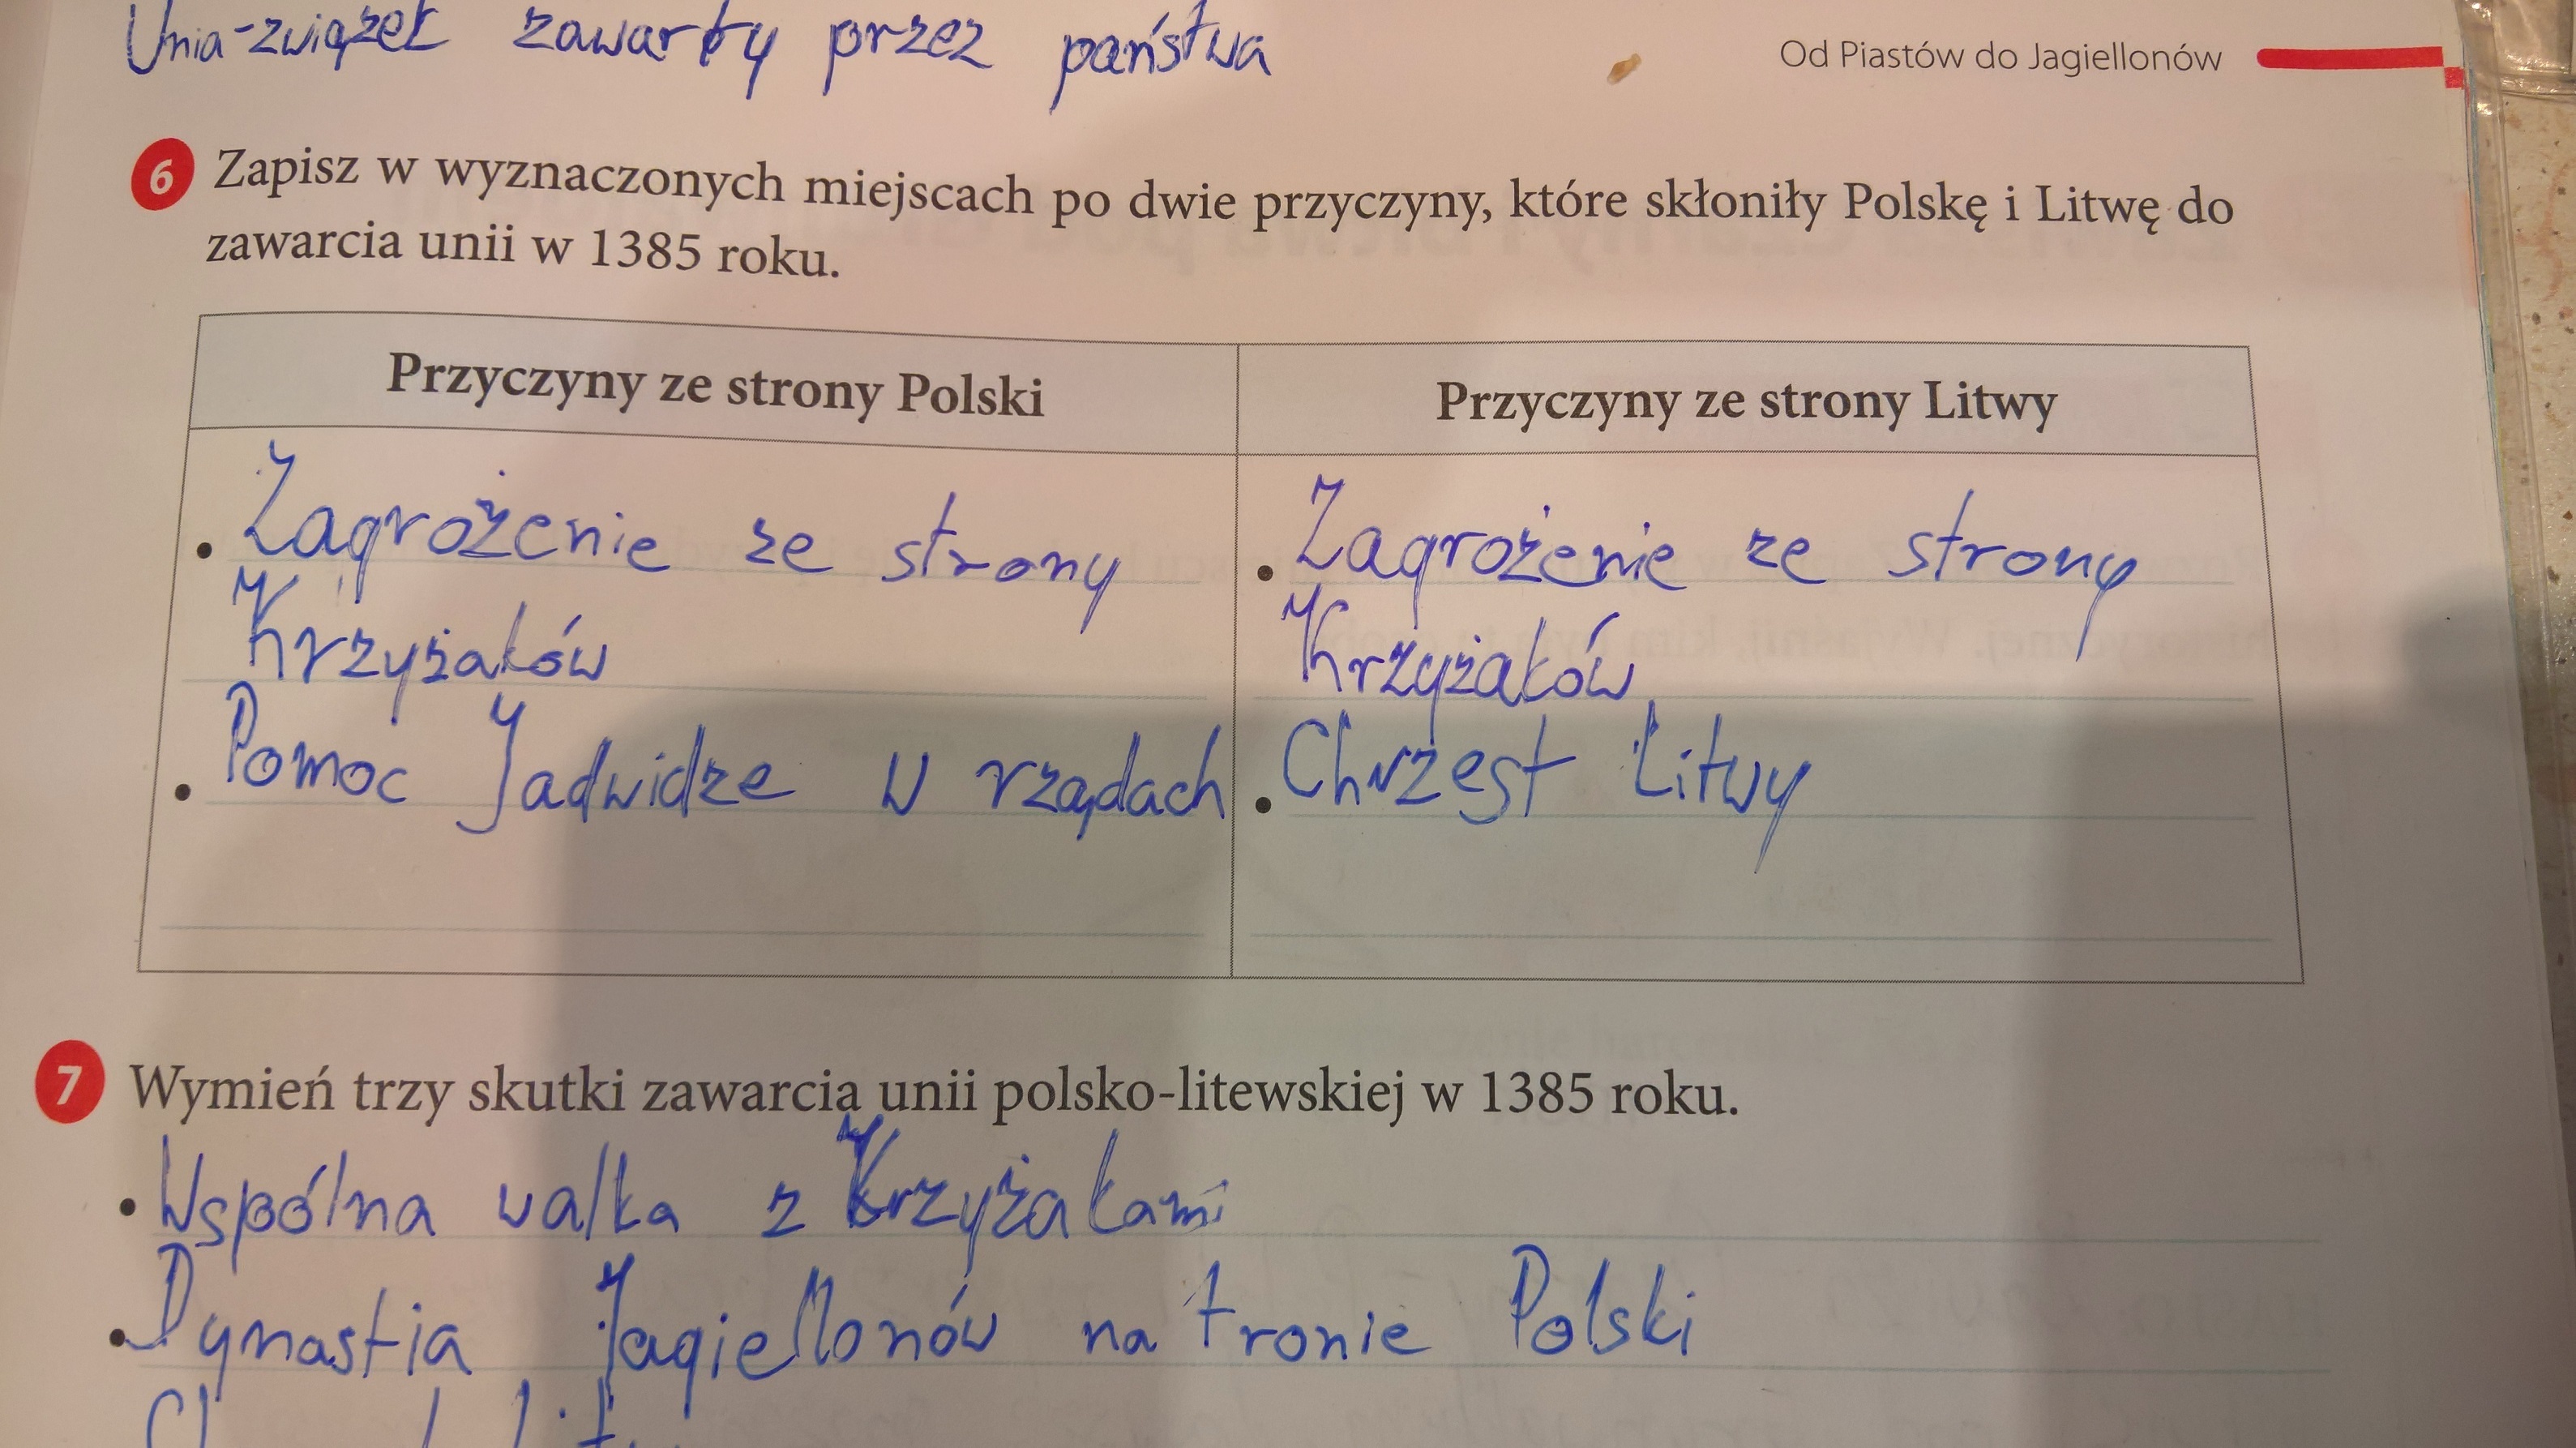 Unia-związek zawarty przez państwa
Od Piastów do Jagiellonów
6 Zapisz w wyznaczonych miejscach po dwie przyczyny, które skłoniły Polskę i Litwę do
zawarcia unii w 1385 roku.
Przyczyny ze strony Polski
• Zagrożenie ze strony
Krzyżaków
• Pomoc Jadwidze w rządach
Przyczyny ze strony Litwy
• Zagrożenie ze strony
Krzyżaków
• Chrzest Litwy
7 Wymień trzy skutki zawarcia unii polsko-litewskiej w 1385 roku.
• Wspólna walka z Krzyżakami
• Dynastia Jagiellonów na tronie Polski